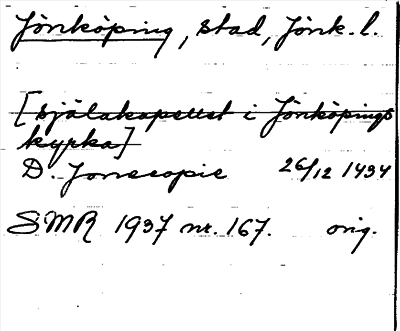 Jönköping, stad, Jönk. l.
[Själakapellet i Jönköpings
kyrka]
D. Jonecopie 26/12 1434
SMR 1937 nr. 167. orig.